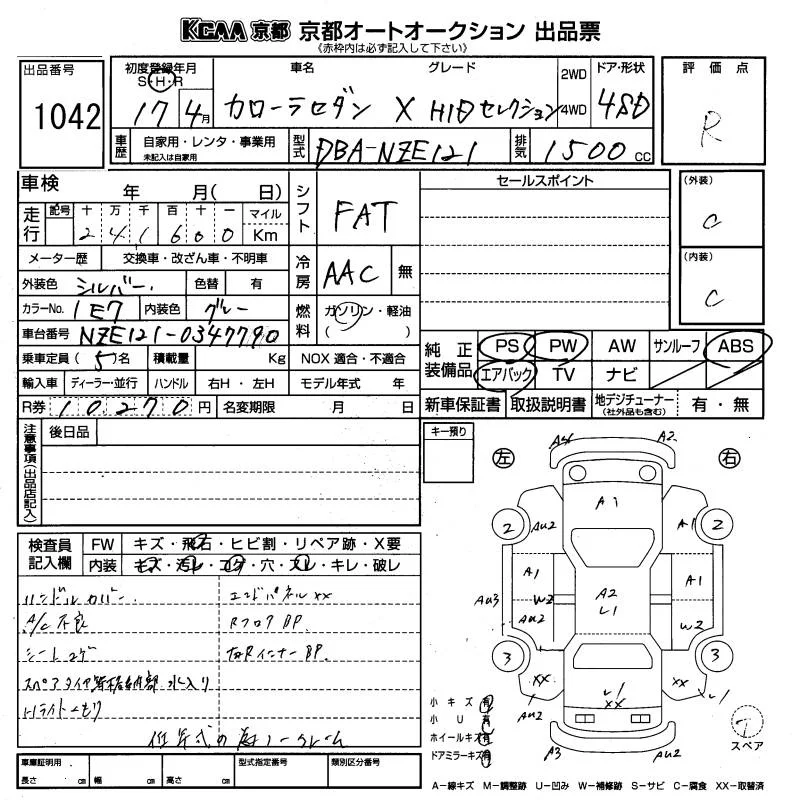 KCAA 京都 京都オートオークション 出品票
《赤枠内は必ず記入して下さい》
出品番号
1042
初度登録年月
S・H・R
17 4月
車名
カローラセダン
グレード
X HIDセレクション
2WD
4WD
ドア・形状
4SD
評価点
R
車歴
自家用・レンタ・事業用
未記入は自家用
型式
DBA-NZE121
排気
1500 cc
車検 年 月( 日)
走行
記号 十 万 千 百 十 一 マイル
2 4 1 6 0 0 Km
シフト
FAT
セールスポイント
(外装)
C
(内装)
C
メーター歴 交換車・改ざん車・不明車
冷房
AAC 無
外装色 シルバー 色替 有
カラーNo. 1E7 内装色 グレー
燃料
ガソリン・軽油
( )
車台番号 NZE121-0347790
乗車定員 (5)名 積載量 Kg NOX 適合・不適合
輸入車 ディーラー・並行 ハンドル 右H・左H モデル年式 年
R券 10270円 名変期限 月 日
純正装備品
PS PW AW サンルーフ ABS
エアバック TV ナビ
新車保証書 取扱説明書 地デジチューナー
(社外品も含む)
有・無
注意事項(出品店記入)
後日品
キー預り
左
右
検査員記入欄
FW キズ・飛石・ヒビ割・リペア跡・X要
内装 キズ・汚レ・コゲ・穴・スレ・キレ・破レ
ハンドルカバー
エンドパネルXX
A/C不良
RフロアBP
シートコゲ
左RインナーBP
スペアタイヤ格納部 水入り
Hライトくもり
低年式の為ノークレーム
A2
A1
AU2
A1
2
2
A1
A1
A2
U1
AU3
W2
AU2
W2
3
3
XX
XX
U1
XX
U1
AU2
A3
AU2
小キズ 有
小U 有
ホイールキズ 有
ドアミラーキズ 有
スペア
車庫証明用
長さ cm 幅 cm 高さ cm
型式指定番号
類別区分番号
A-線キズ M-調整跡 U-凹み W-補修跡 S-サビ C-腐食 XX-取替済